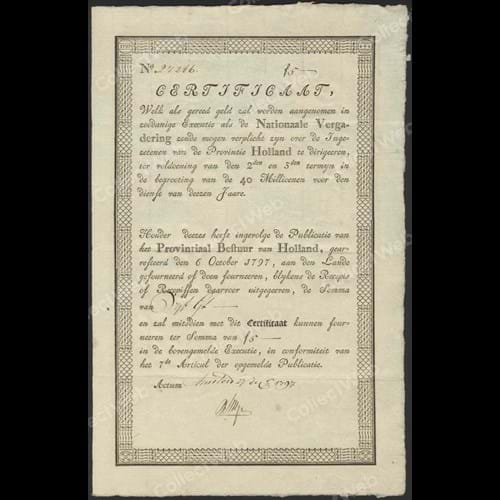 No. 27286. f5
CERTIFICAAT,
Welk als gereed geld zal worden aangenomen in
zoodanige Executie als de Nationaale Verga-
dering zoude mogen verplicht zijn over de Inge-
zetenen van de Provintie Holland te dirigeeren,
ter voldoening van den 2den en 3den termyn in
de begrooting van de 40 Millioenen voor den
dienst van deezen Jaare.
Houder deezes heeft ingevolge de Publicatie van
het Provintiaal Bestuur van Holland, gear-
resteerd den 6 October 1797, aan den Lande
gefourneerd of doen fourneeren, blykens de Recepis
of Recepissen daarvoor uitgegeeven, de Somma
van Vyf Gl
en zal mitsdien met dit Certificaat kunnen four-
neeren ter Somma van f5
in de bovengemelde Executie, in conformiteit van
het 7de Articul der opgemelde Publicatie.
Actum 27 1797
CollectWeb